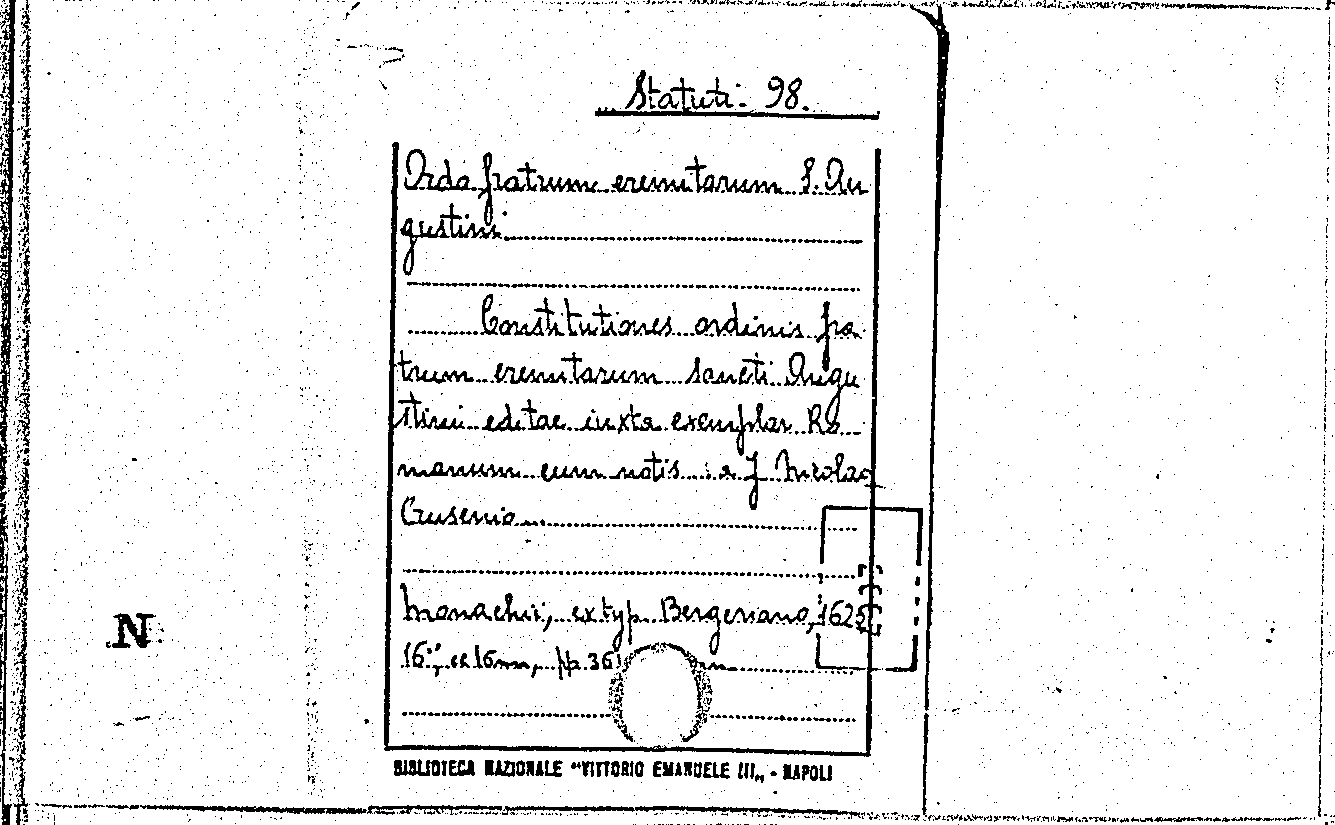 Statuti - 98.
Ordo fratrum eremitarum S. Au
gustini
Constitutiones ordinis fra
trum eremitarum sancti Augu
stini editae iuxta exemplar Ro
manum cum notis a J. Nicolao
Crusenio
Monachii, ex typ. Bergeriano, 1625
16°, cc 16nn, pp. 361
N
BIBLIOTECA NAZIONALE "VITTORIO EMANUELE III„ - NAPOLI